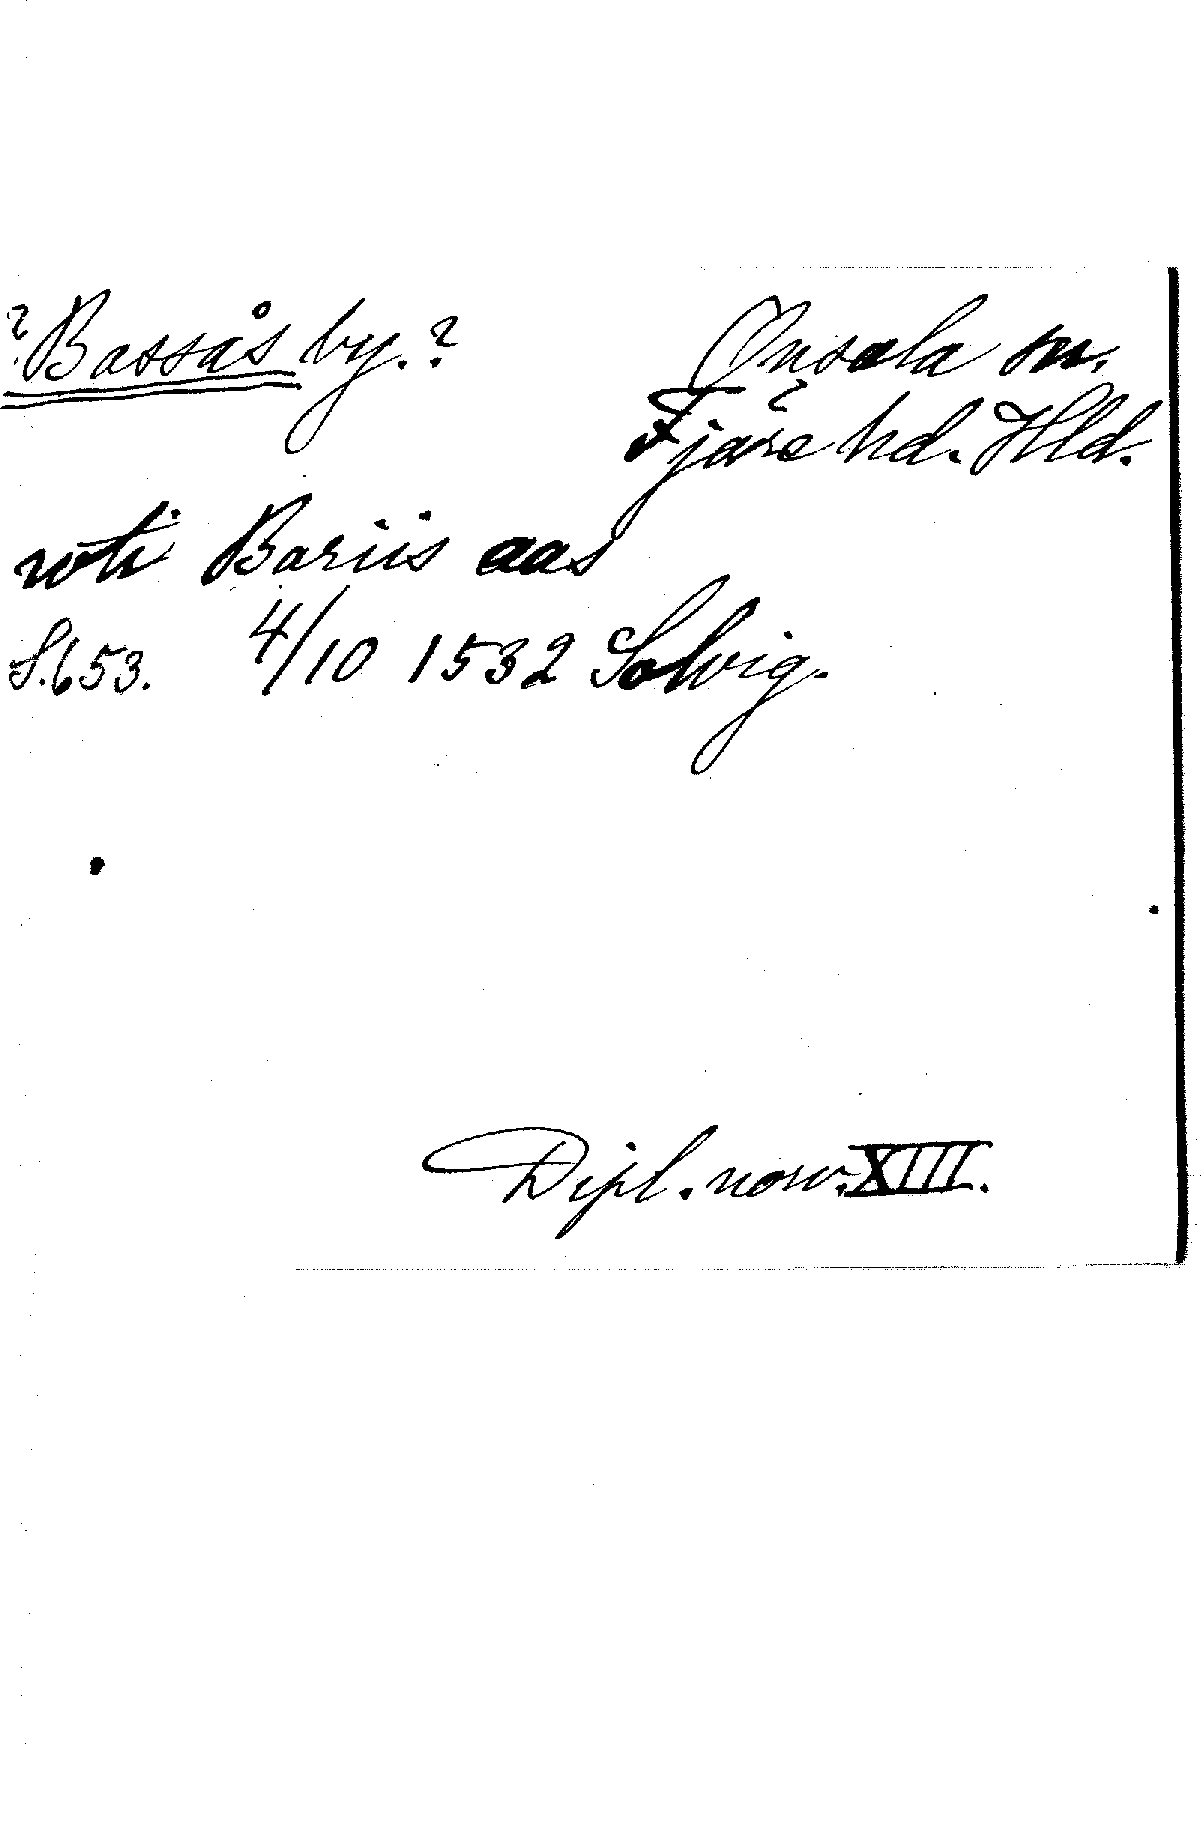 ? Bassås by. ?
Onsala sn.
Fjäre hd. Hld.
uti Bariis aas
S. 653. 4/10 1532 Solvig.
Dipl. norv. XIII.